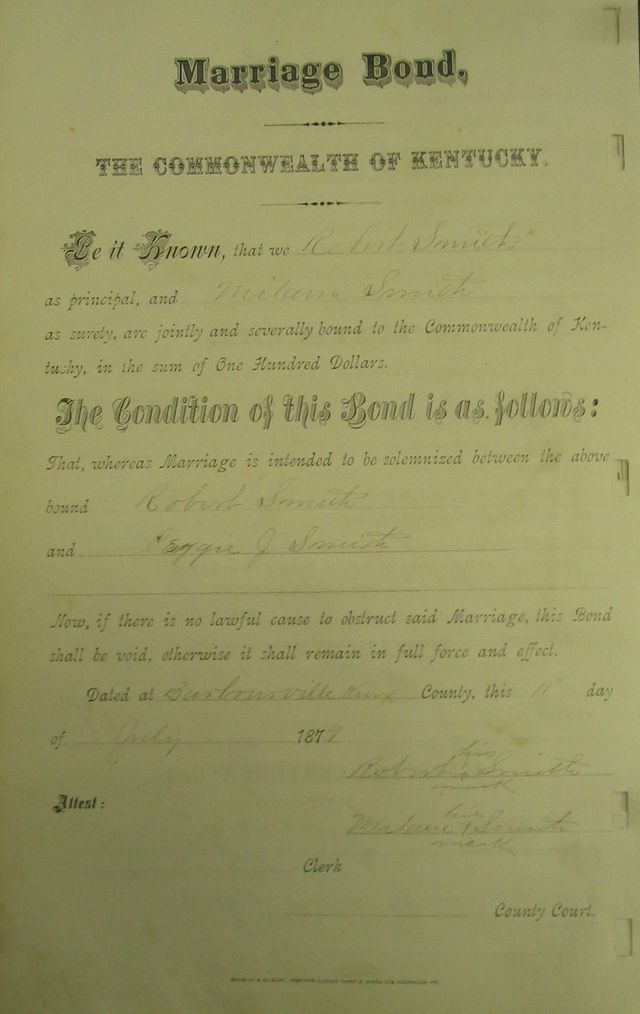 Marriage Bond.
THE COMMONWEALTH OF KENTUCKY.
Be it Known, that we Robert Smith
as principal, and Smith
as surety, are jointly and severally bound to the Commonwealth of Ken-
tucky, in the sum of One Hundred Dollars.
The Condition of this Bond is as follows:
That, whereas Marriage is intended to be solemnized between the above
bound Robert Smith
and Peggie J. Smith
Now, if there is no lawful cause to obstruct said Marriage, this Bond
shall be void, otherwise it shall remain in full force and effect.
Dated at Barbourville Knox County, this 11" day
of July 1879
his
Robert x Smith
mark
Attest:
his
x Smith
mark
Clerk
County Court.